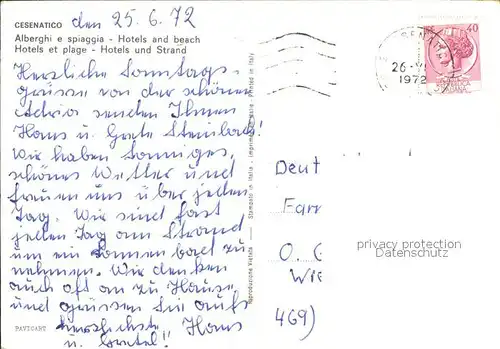 CESENATICO den 25.6.72
Alberghi e spiaggia - Hotels and beach
Hotels et plage - Hotels und Strand
Herzliche Sonntags-
grüsse von der schönen
Adria senden Ihnen
Hans u. Grete
Wir haben Sonniges,
schönes Wetter und
freuen uns über jeden
Tag. Wir sind fast
jeden Tag am Strand
um ein Sonnen bad zu
nehmen. Wir denken
auch oft an zu Hause
und grüssen Sie aufs
herzlichste Hans
u. Gretel!!
RAVICART
Riproduzione Vietata
Stampato in Italia - Imprimé en Italie - Printed in Italy
26-
1972
40
Deut
Farr
O. G
Wie
469)
privacy protection
Datenschutz